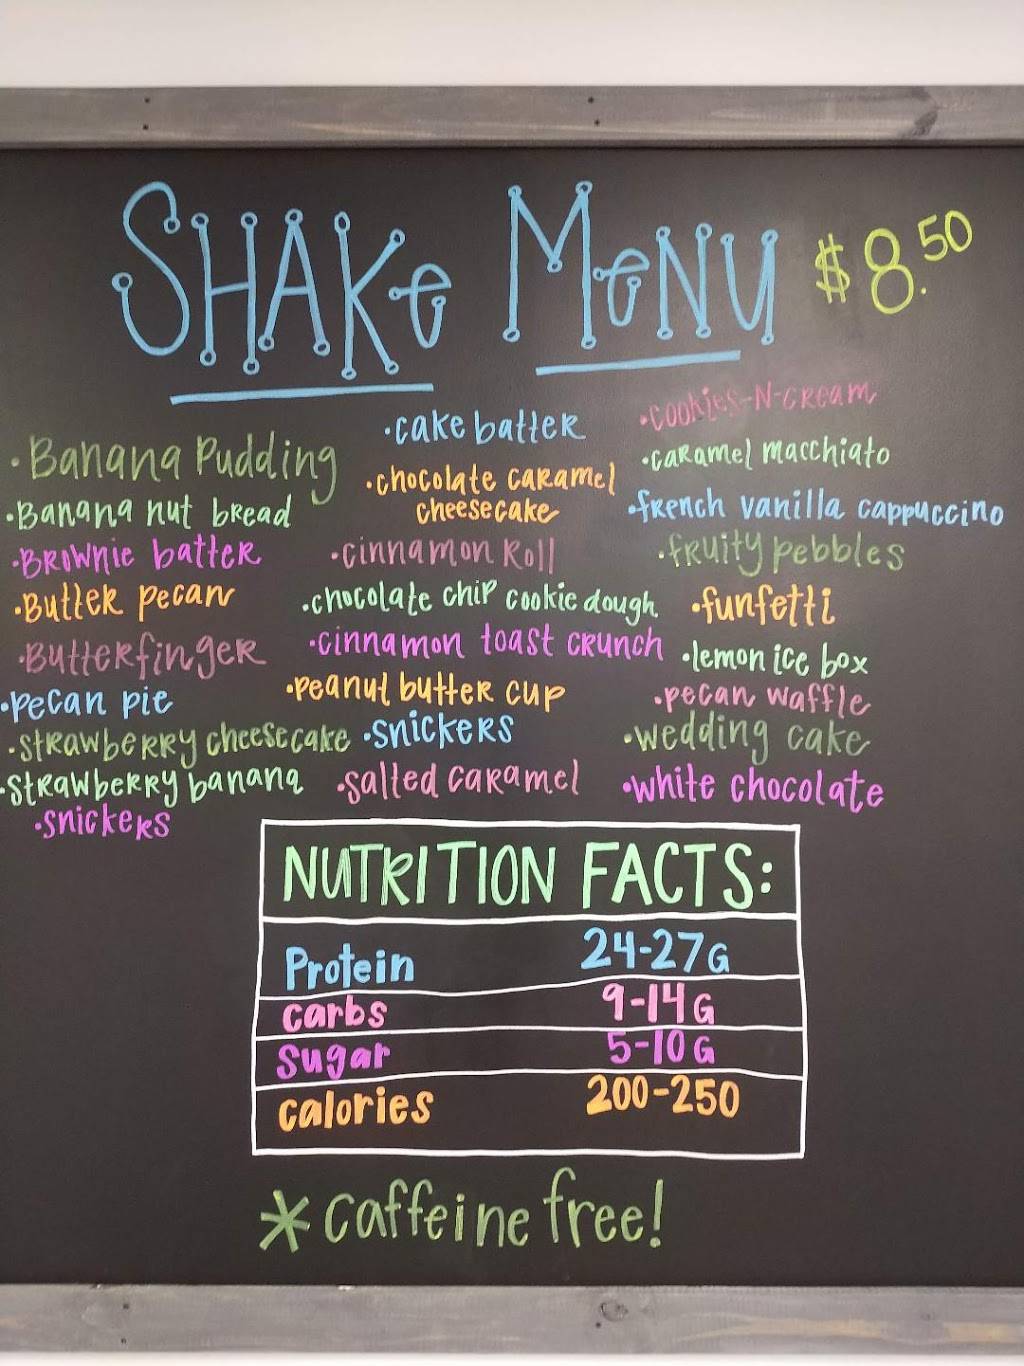 SHAKe MeNU $8.50
•Banana Pudding
•Banana nut bread
•Brownie batter
•Butter pecan
•Butterfinger
•pecan pie
•strawberry cheesecake
•strawberry banana
•snickers
•cake batter
•chocolate caramel
cheesecake
•cinnamon Roll
•chocolate chip cookie dough
•cinnamon toast crunch
•peanut butter cup
•snickers
•salted caramel
•cookies-N-cream
•caramel macchiato
•french vanilla cappuccino
•fruity pebbles
•funfetti
•lemon ice box
•pecan waffle
•wedding cake
•white chocolate
NUTRITION FACTS:
Protein 24-27G
carbs 9-14G
Sugar 5-10G
calories 200-250
*caffeine free!